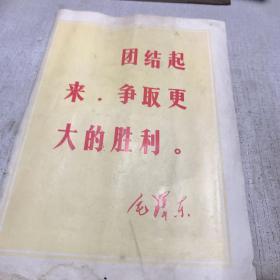 团结起
来．争取更
大的胜利。
毛泽东